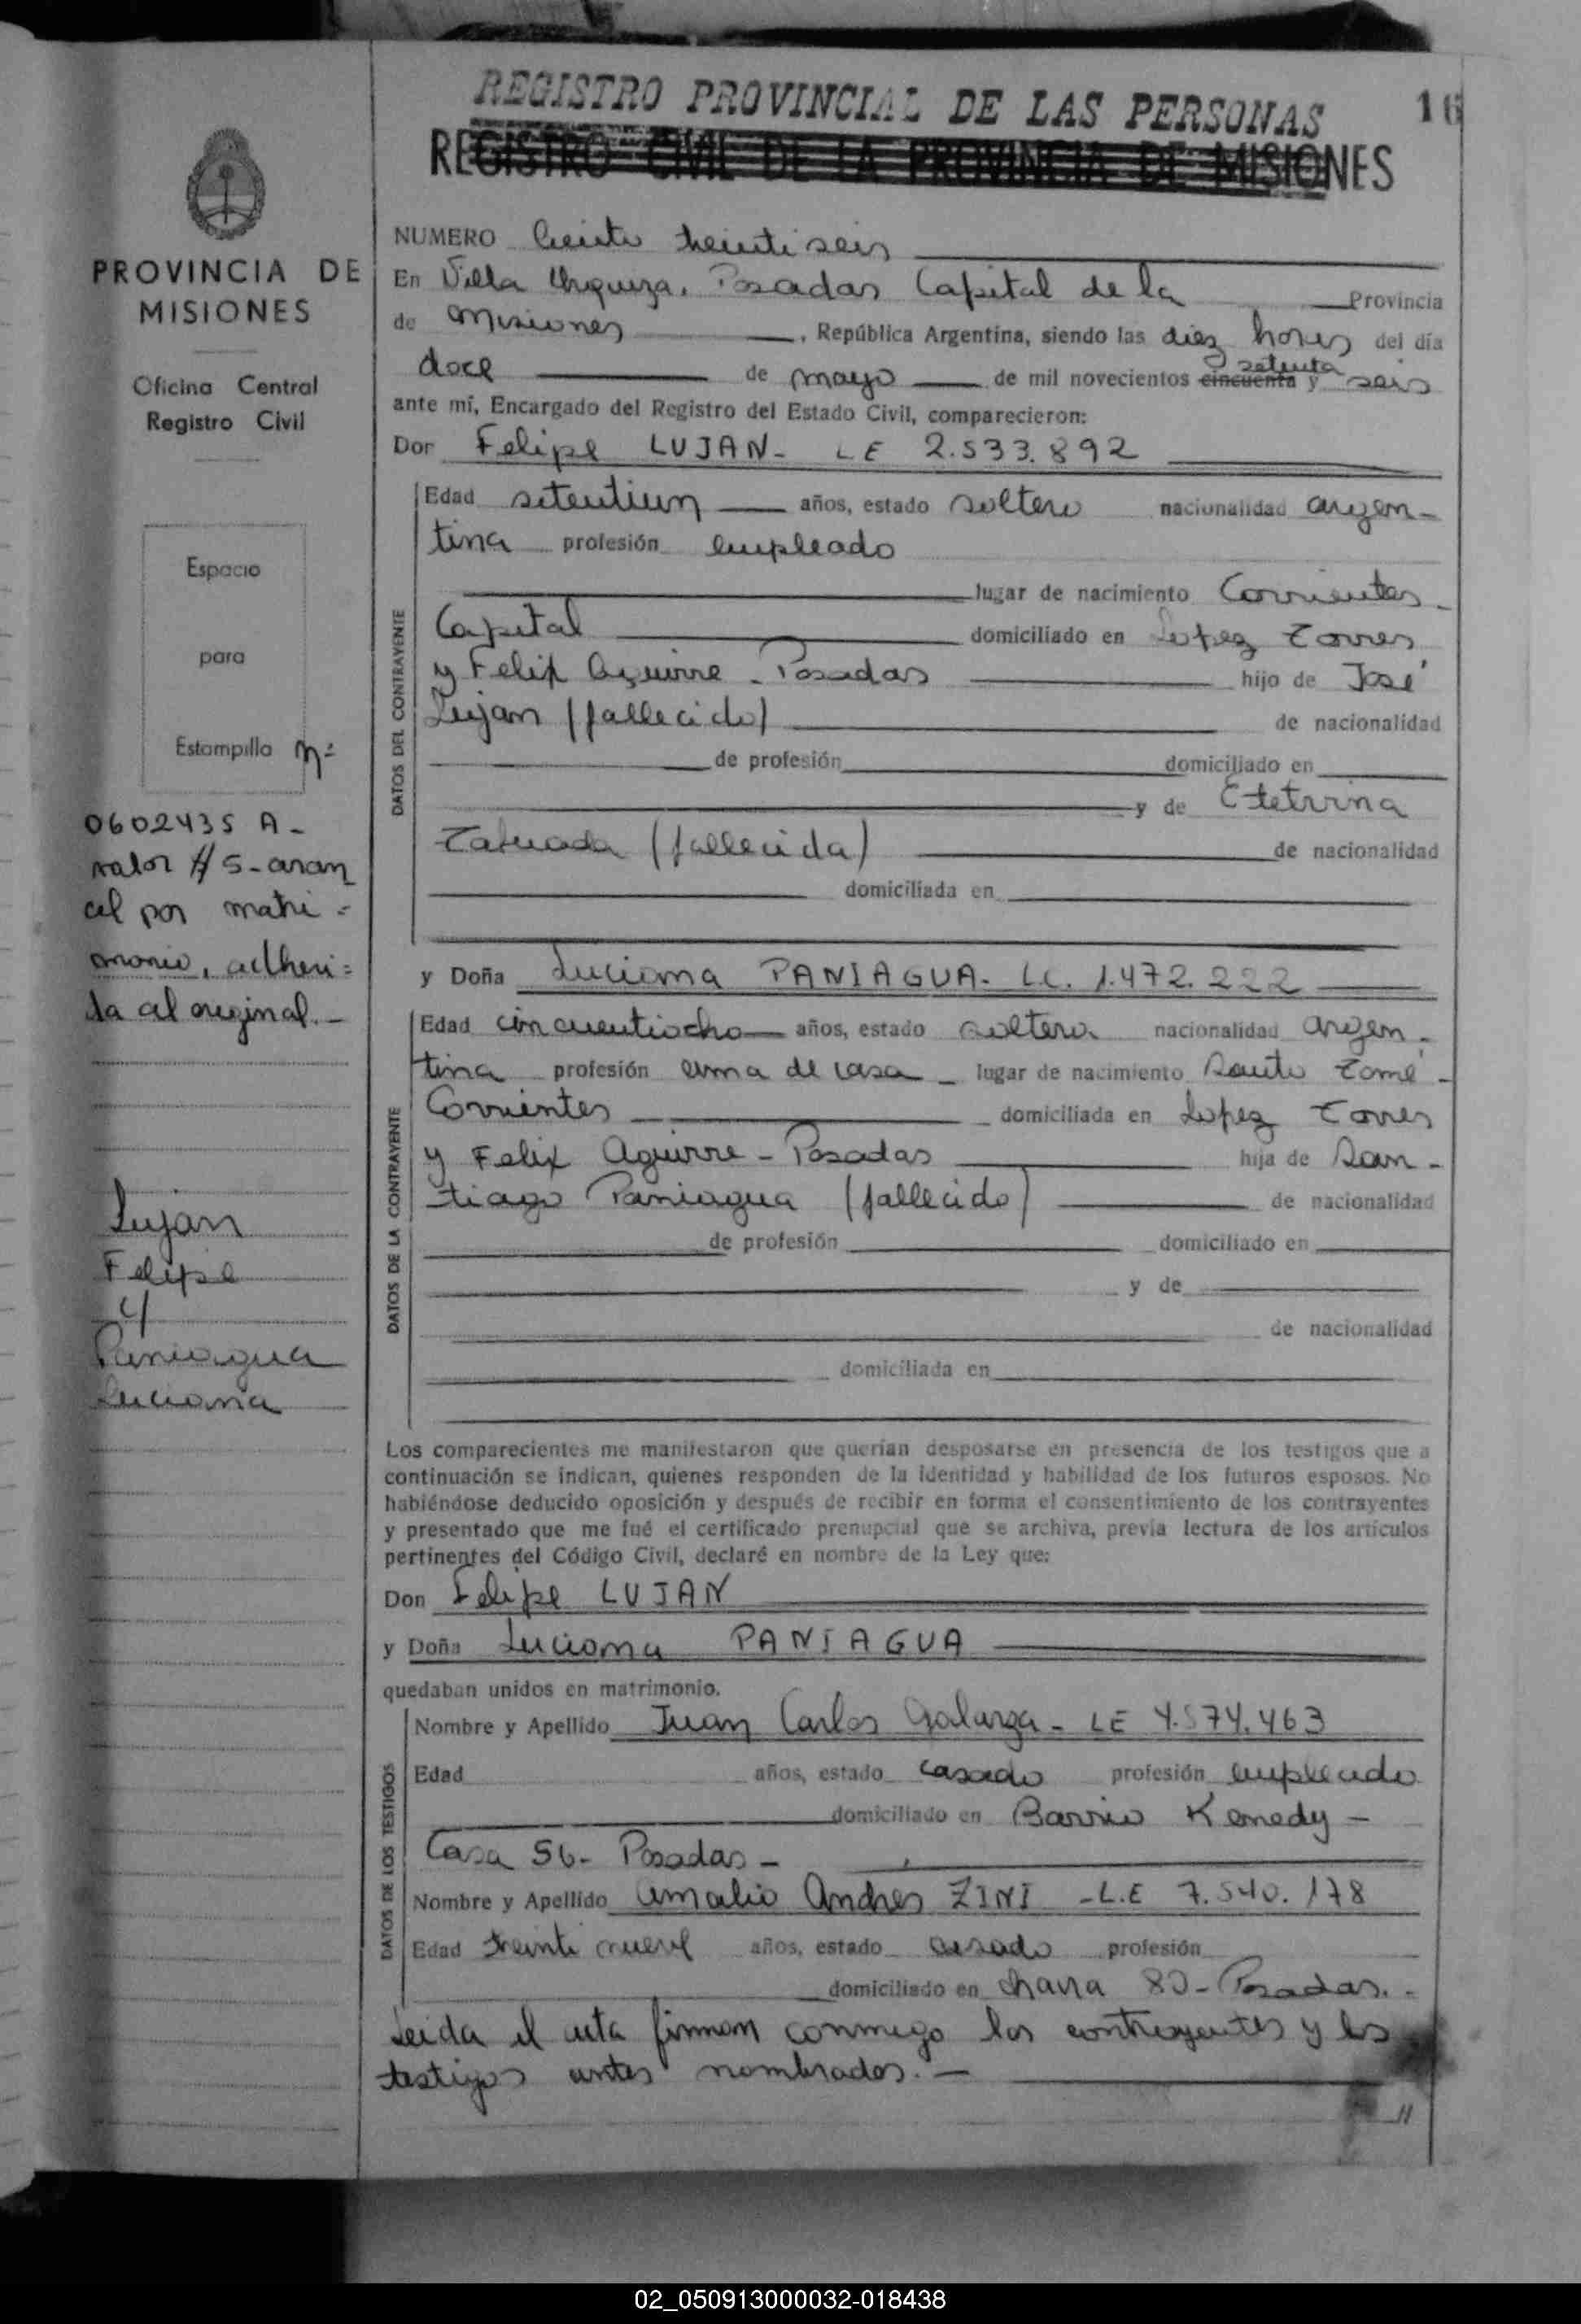 REGISTRO PROVINCIAL DE LAS PERSONAS
16
REGISTRO CIVIL DE LA PROVINCIA DE MISIONES
PROVINCIA DE
MISIONES
Oficina Central
Registro Civil
Espacio
para
Estampilla Nº
0602435 A -
valor $ 5 - aran
cel por matri =
monio, adheri =
da al original. -
Lujan
Felipe
y
Paniagua
Luciana
NUMERO Ciento treinti seis
En Villa Urquiza, Posadas Capital de la Provincia
de Misiones, República Argentina, siendo las diez horas del día
doce de mayo de mil novecientos cincuenta setenta y seis
ante mí, Encargado del Registro del Estado Civil, comparecieron:
Don Felipe LUJAN - LE 2.533.892
DATOS DEL CONTRAYENTE
Edad setentiun años, estado soltero nacionalidad argen-
tina profesión empleado
lugar de nacimiento Corrientes -
Capital domiciliado en Lopez Torres
y Felix Aguirre - Posadas hijo de José
Lujan (fallecido) de nacionalidad
de profesión domiciliado en
y de
(fallecida) de nacionalidad
domiciliada en
y Doña Luciana PANIAGUA - L.C. 1.472.222
DATOS DE LA CONTRAYENTE
Edad cincuentiocho años, estado soltera nacionalidad argen -
tina profesión ama de casa - lugar de nacimiento Santo Tomé -
Corrientes domiciliada en Lopez Torres
y Felix Aguirre - Posadas hija de San -
tiago Paniagua (fallecido) de nacionalidad
de profesión domiciliado en
y de
de nacionalidad
domiciliada en
Los comparecientes me manifestaron que querían desposarse en presencia de los testigos que a
continuación se indican, quienes responden de la identidad y habilidad de los futuros esposos. No
habiéndose deducido oposición y después de recibir en forma el consentimiento de los contrayentes
y presentado que me fué el certificado prenupcial que se archiva, previa lectura de los artículos
pertinentes del Código Civil, declaré en nombre de la Ley que:
Don Felipe LUJAN
y Doña Luciana PANIAGUA
quedaban unidos en matrimonio.
DATOS DE LOS TESTIGOS
Nombre y Apellido Juan Carlos Galarza - LE 4.574.463
Edad años, estado casado profesión empleado
domiciliado en Barrio Kenedy -
Casa 56 - Posadas -
Nombre y Apellido Amalio Andres ZINI - L.E 7.540.178
Edad treinti nueve años, estado casado profesión
domiciliado en 80 - Posadas. -
Leida el acta firman conmigo los contrayentes y los
testigos antes nombrados. -
//
02_050913000032-018438